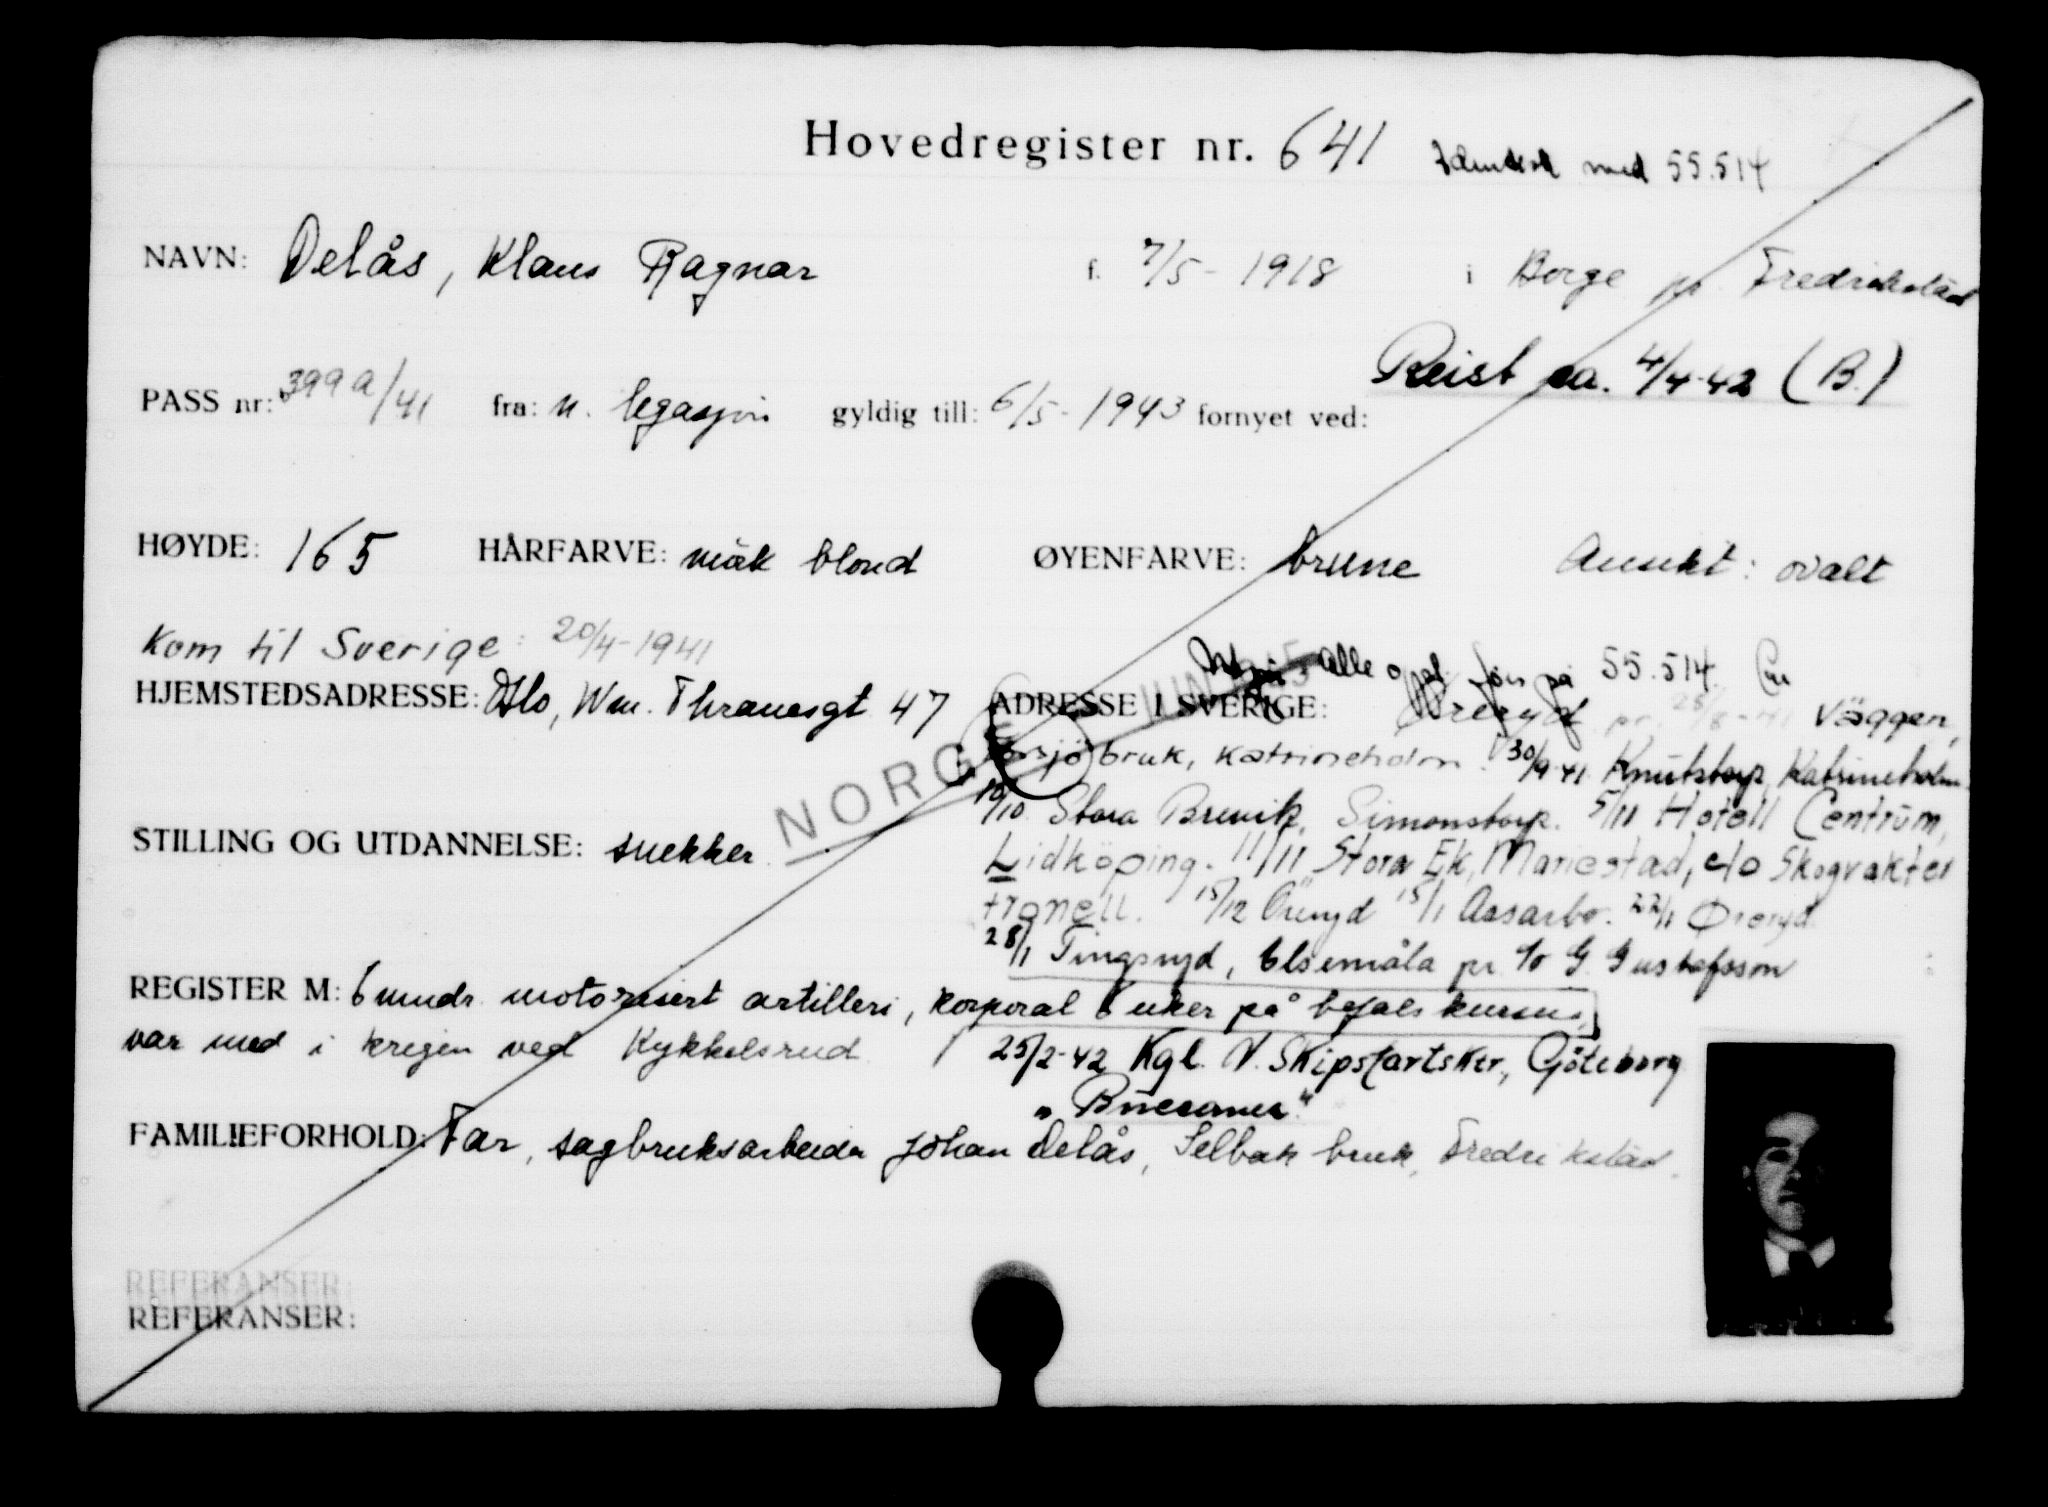 Hovedregister nr. 641 Identisk med 55.514
NAVN: Delås, Klaus Ragnar f. 7/5-1918 i Borge pr Fredrikstad
Reist ca. 4/4-42 (B.)
PASS nr: 399a/41 fra: n. legasjon gyldig till: 6/5-1943 fornyet ved:
HØYDE: 165 HÅRFARVE: mörk blond ØYENFARVE: brune Ansikt: ovalt
Kom til Sverige: 20/4-1941
alle o føres på 55.514
HJEMSTEDSADRESSE: Oslo, Wm. Thranesgt 47 ADRESSE I SVERIGE: Öreryd pr. 28/8-41 Väggen,
NORGE
sjöbruk, Katrineholm. 30/9-41 Knutstorp, Katrineholm.
10/10 Stora Brevik, Simonstorp. 5/11 Hotell Centrum,
STILLING OG UTDANNELSE: snekker
Lidköping. 11/11 Stora Ek, Mariestad, c/o Skogvakter
Franell. 15/12 Öreryd 15/1 Aasarbo. 22/1 Öreryd
28/1 Tingsryd, Elsemåla pr c/o G. Gustafsson
REGISTER M: 6 mndr motorisert artilleri, korporal 6 uker på befalskursus,
var med i krigen ved Kykkelsrud
25/2-42 Kgl. N. Skipsfartsktr., Göteborg
"Buccaneer"
FAMILIEFORHOLD: Far, sagbruksarbeider Johan Delås, Selbak bruk, Fredrikstad.
REFERANSER:
REFERANSER: